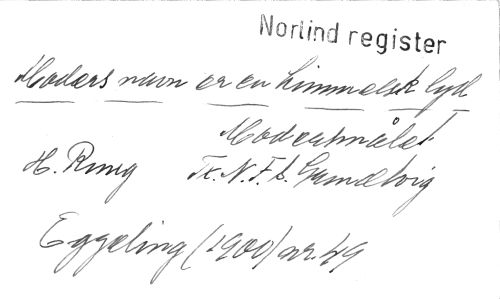 Norlind register
Moders navn er en himmelsk lyd
Modersmålet
H. Rung Tx. N. F. S. Grundtvig
Eggeling (1900) nr. 49